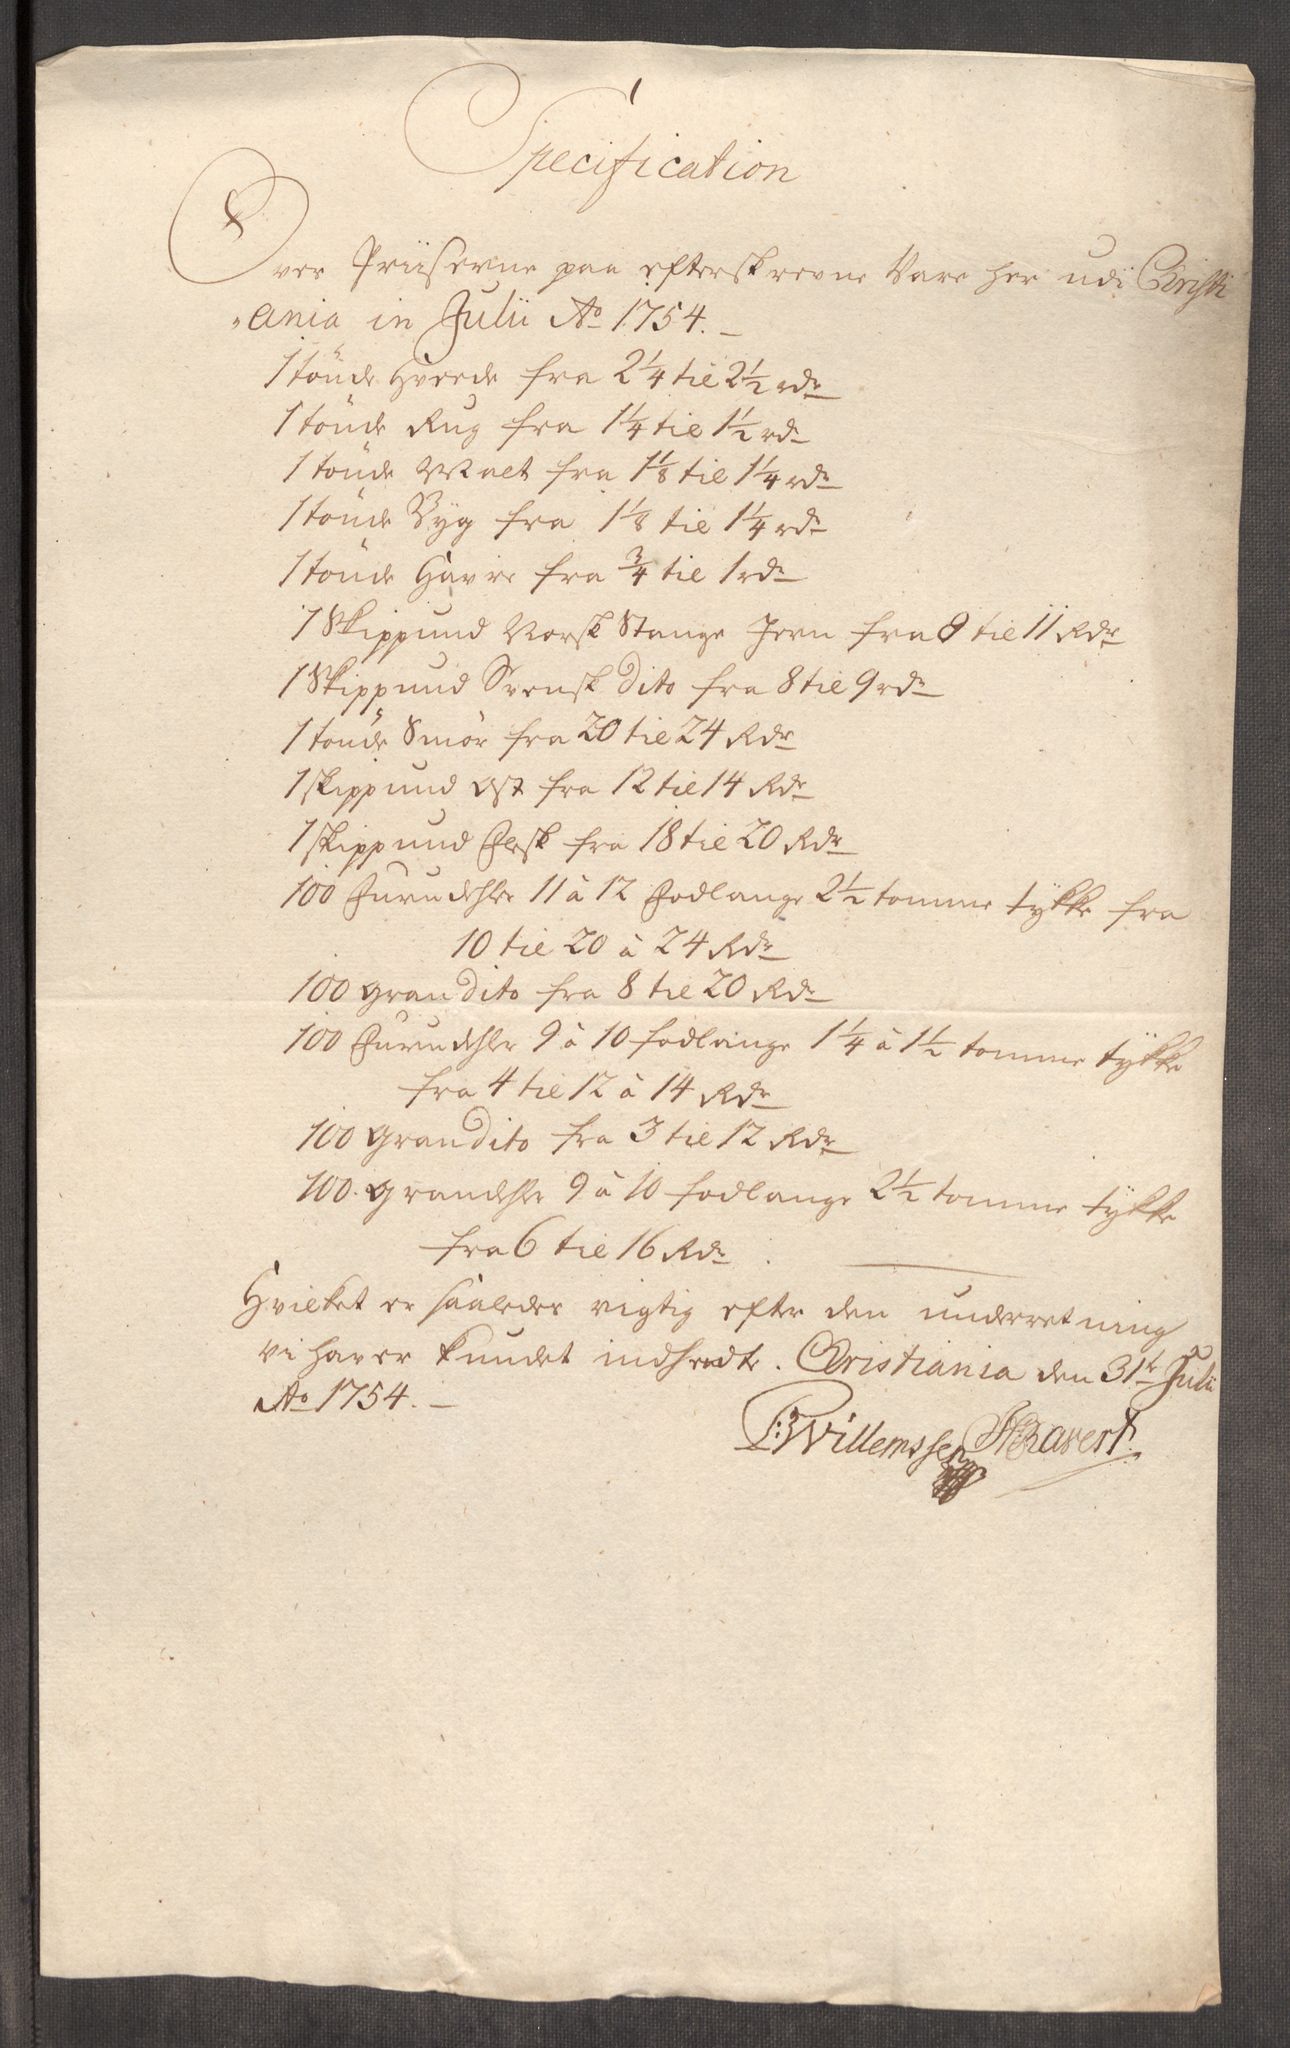 Specification
Over Priiserne paa efterskrevne Vare her udi Christi
„ania in Julii Ao 1754.
1 tönde Hvede fra 2 1/4 til 2 1/2 rdr
1 tönde Rug fra 1 1/4 til 1 1/2 rdr
1 tönde Malt fra 1 1/8 til 1 1/4 rdr
1 tönde Byg fra 1 1/8 til 1 1/4 rdr
1 tönde Havre fra 3/4 til 1 rdr
1 Skippund Norsk Stange Jern fra til 11 Rdr
1 Skippund Svensk Dito fra 8 til 9 rdr
1 tönde Smör fra 20 til 24 Rdr
1 skippund Ost fra 12 til 14 Rdr
1 skippund Flesk fra 18 til 20 Rdr
100 Furudehler 11 à 12 Fodlange 2 1/2 tomme tykke fra
10 til 20 à 24 Rdr
100 gran Dito fra 8 til 20 Rdr
100 Furudehler 9 à 10 fodlange 1 1/4 à 1 1/2 tomme tykke
fra 4 til 12 à 14 Rdr
100 gran Dito fra 3 til 12 Rdr
100. grandehler 9 à 10 fodlange 2 1/2 tomme tykke
fra 6 til 16 Rdr
Hvilket er saaledes rigtig efter den underretning
vi haver kundet indhendte. Christiania den 31te Julii
Ao 1754.
Willemssen Ravert.